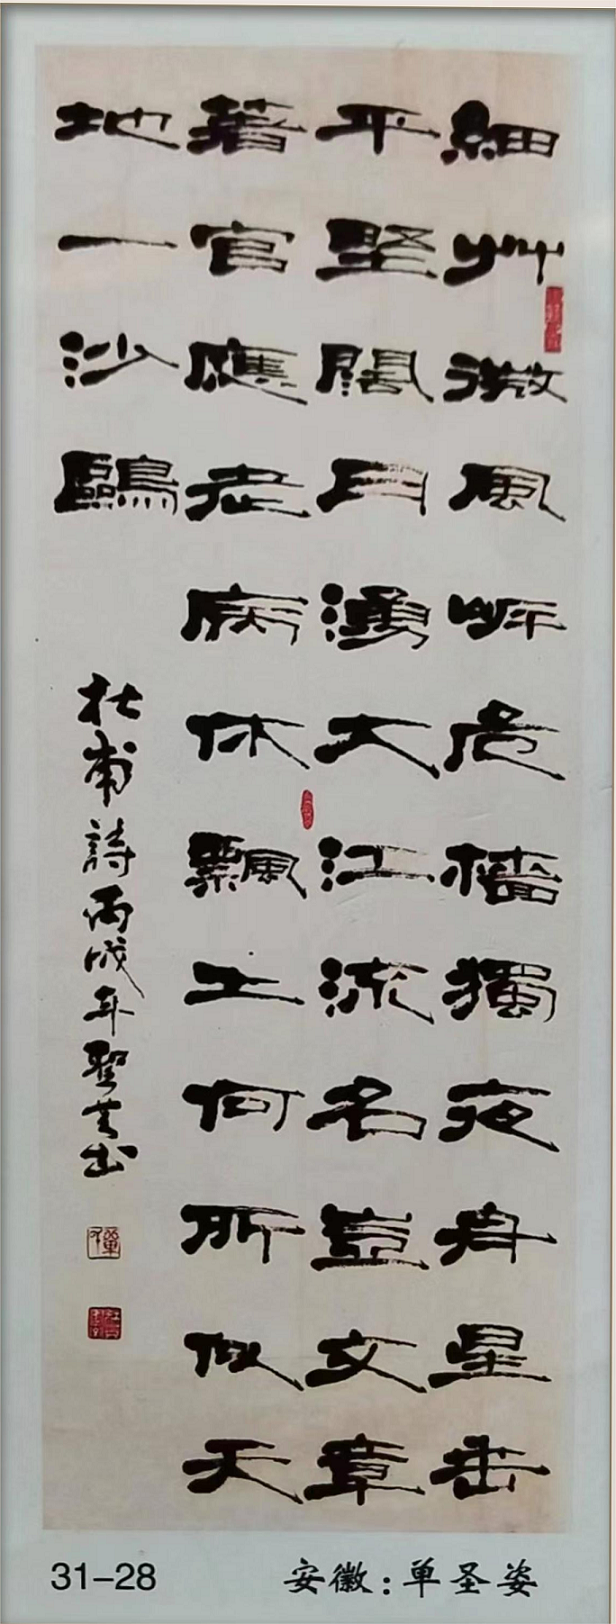 細艸微風岸危檣獨夜舟星垂
平墅闊月湧大江流名豈文章
著官應老病休飄〻何所似天
地一沙鷗
杜甫詩丙戌年聖姿书
31-28 安徽:单圣姿